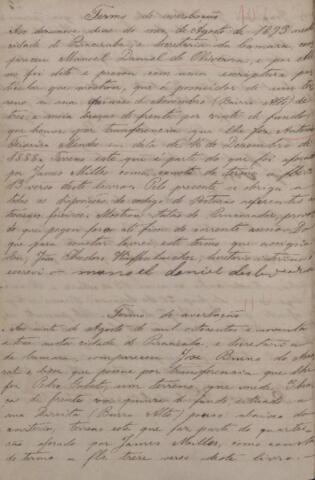 Termo de averbação
Aos dezenove dias do mez de Agosto de 1893 nesta
cidade de Piracicaba e secretaria da camara, com-
pareceu Manuel Daniel de Oliveira, e por elle
me foi dito e provou com uma escriptura par-
ticular que mostrou, que é possuidor de um ter-
reno a rua quinze de Novembro (Bairro Alto) de
tres e meia braças de frente por vinte de fundo,
que houve por transferencia que lhe fez Antonio
Teixeira Mendes em data de 16 de Dezembro de
1888. Terreno este que é parte do que foi aforado
por James Miller como consta do termo a folhas
13 verso deste livro. Pelo presente se obriga a
todas as disposições do codigo de Posturas referentes a
terrenos foreiros. Mostrou talão do Procurador, provan-
do que pagou foros até fim do corrente anno. Do
que para constar lavrei este termo que assigna.
Eu, João
escrevi. manoel daniel de oliveira
Termo de averbação
Aos vinte de Agosto de mil oitocentos e noventa
e tres nesta cidade de Piracicaba, e secretaria
da camara, compareceu José Bueno de
e disse que possue por transferencia que lhe
fez Pedro um terreno, que mede 3 bra-
ças de frente por quinze de fundo, sito a
rua Direita (Bairro Alto) pouco abaixo do
terreno este que faz parte do quartei-
rão aforado por James Miller, como consta
do termo a fls. treze verso deste livro.